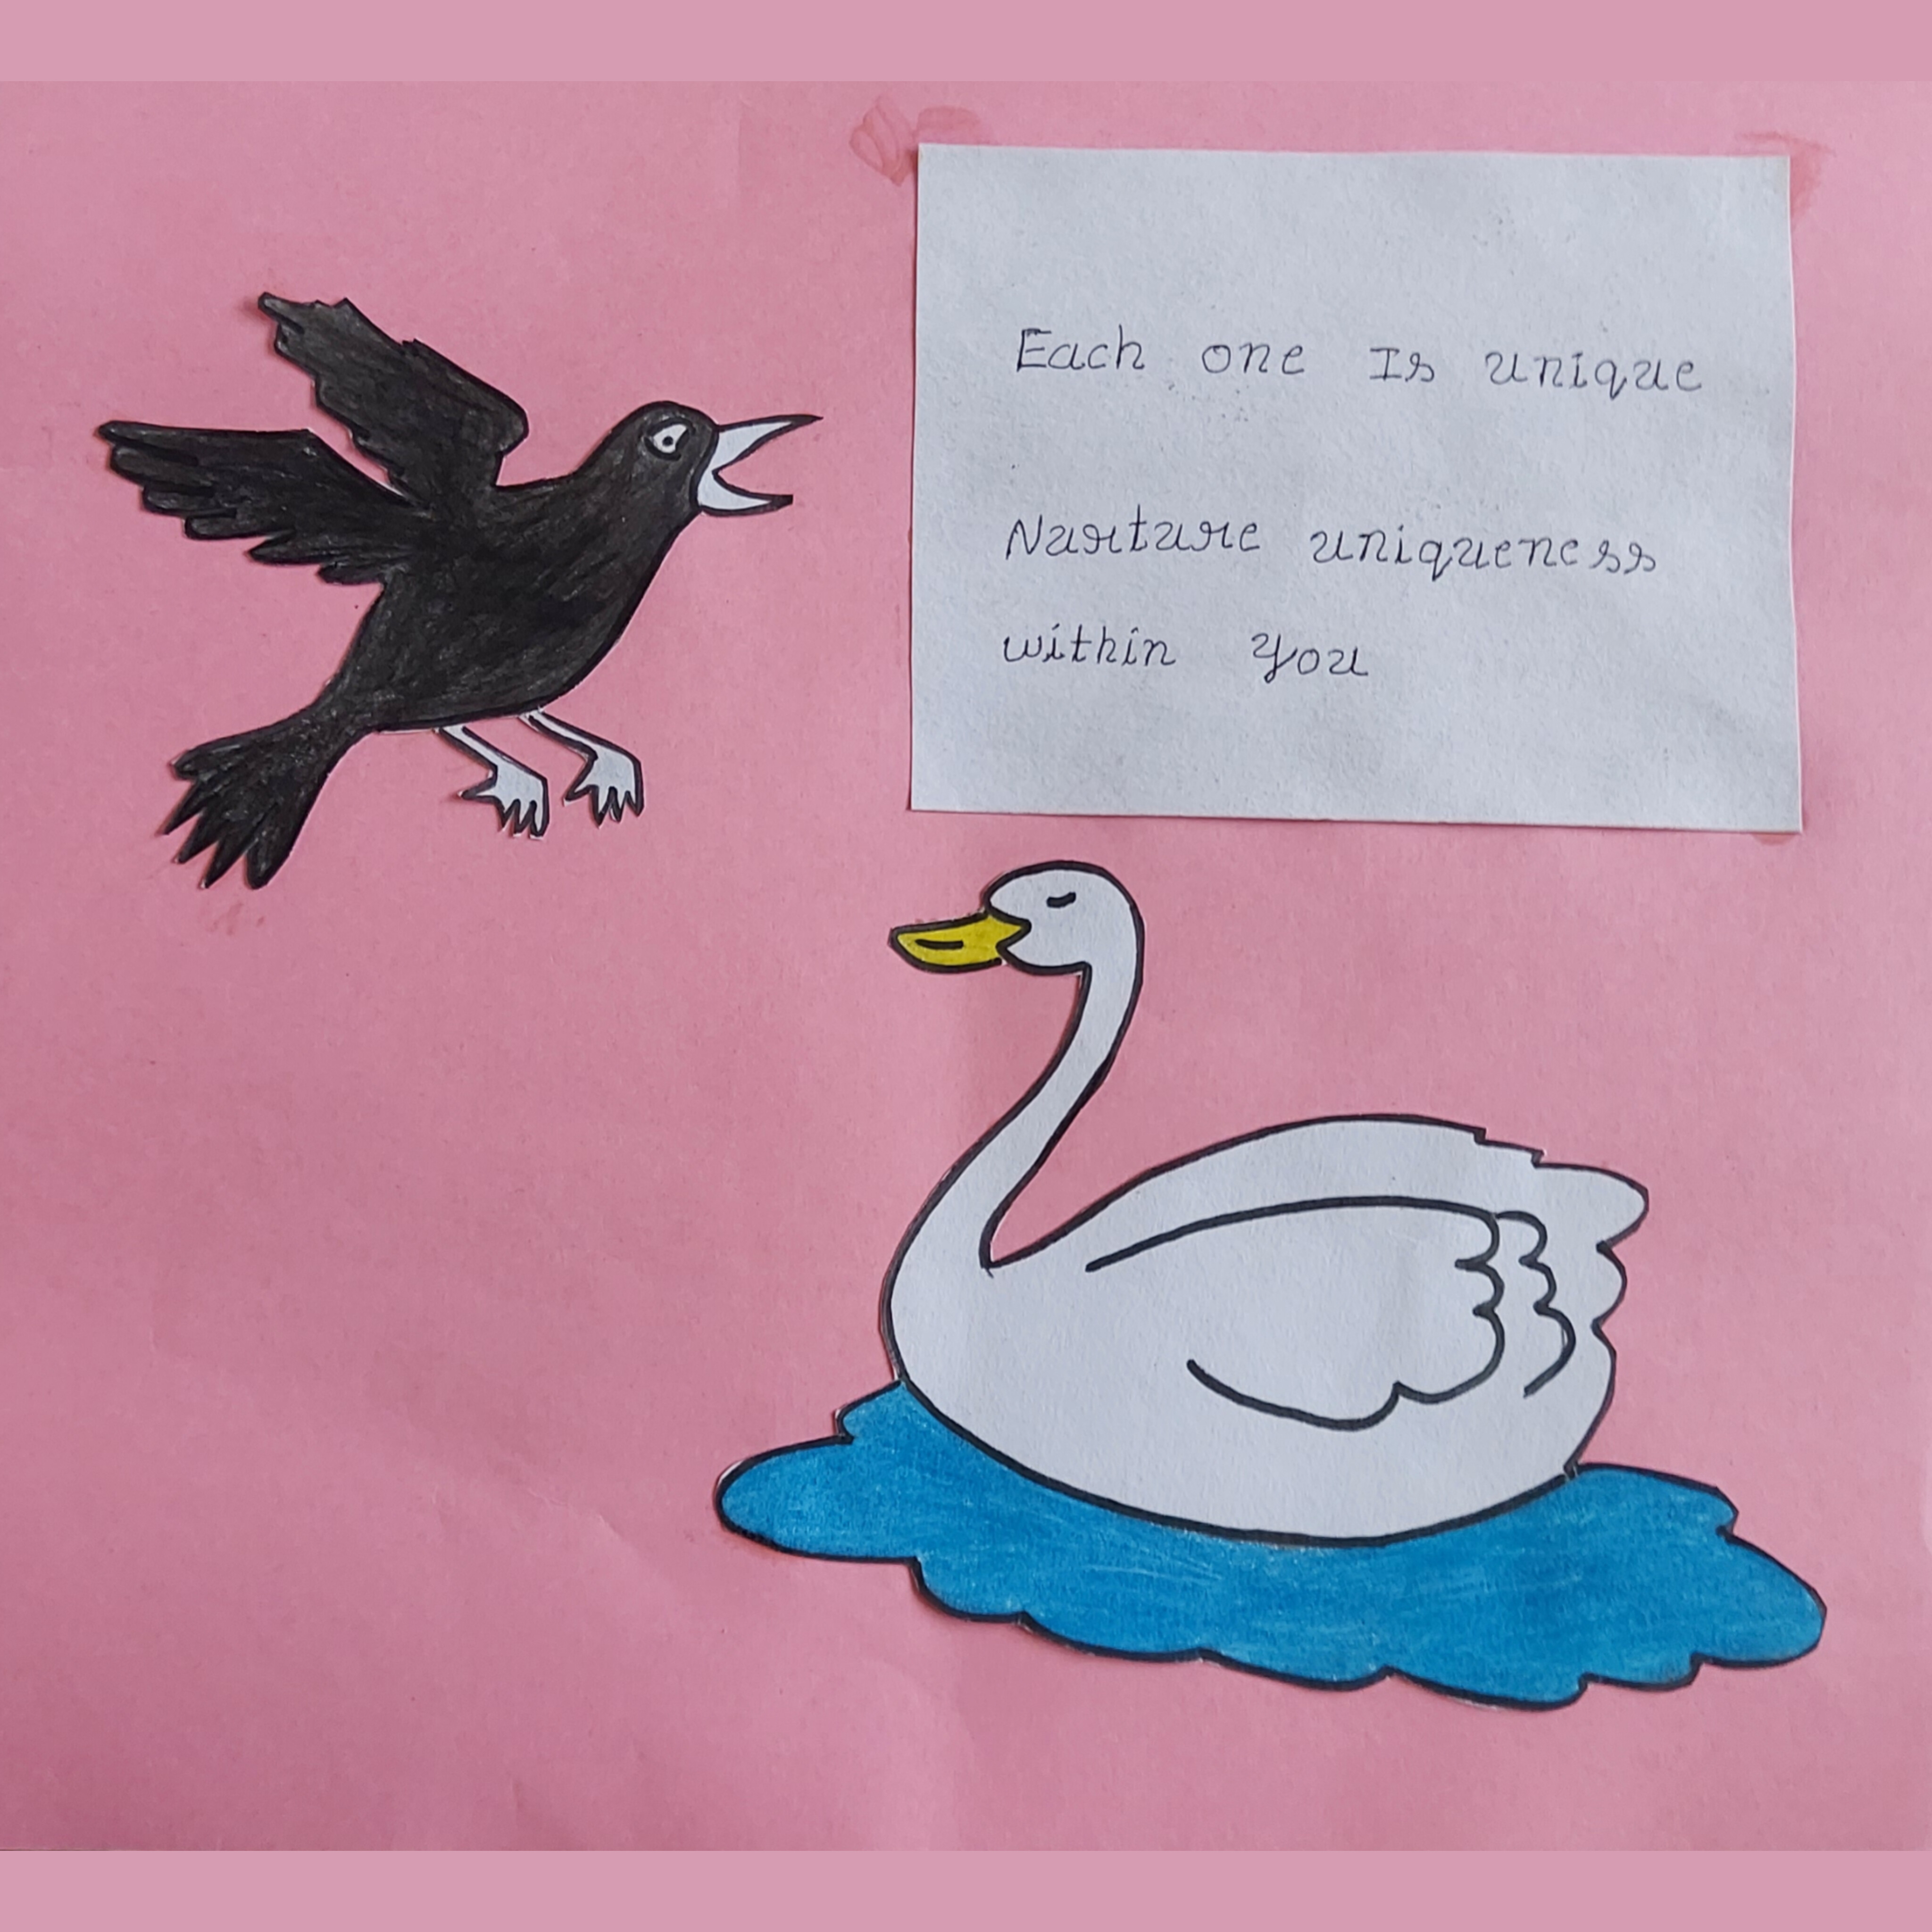 Each one Is unique
Nurture uniqueness
within you